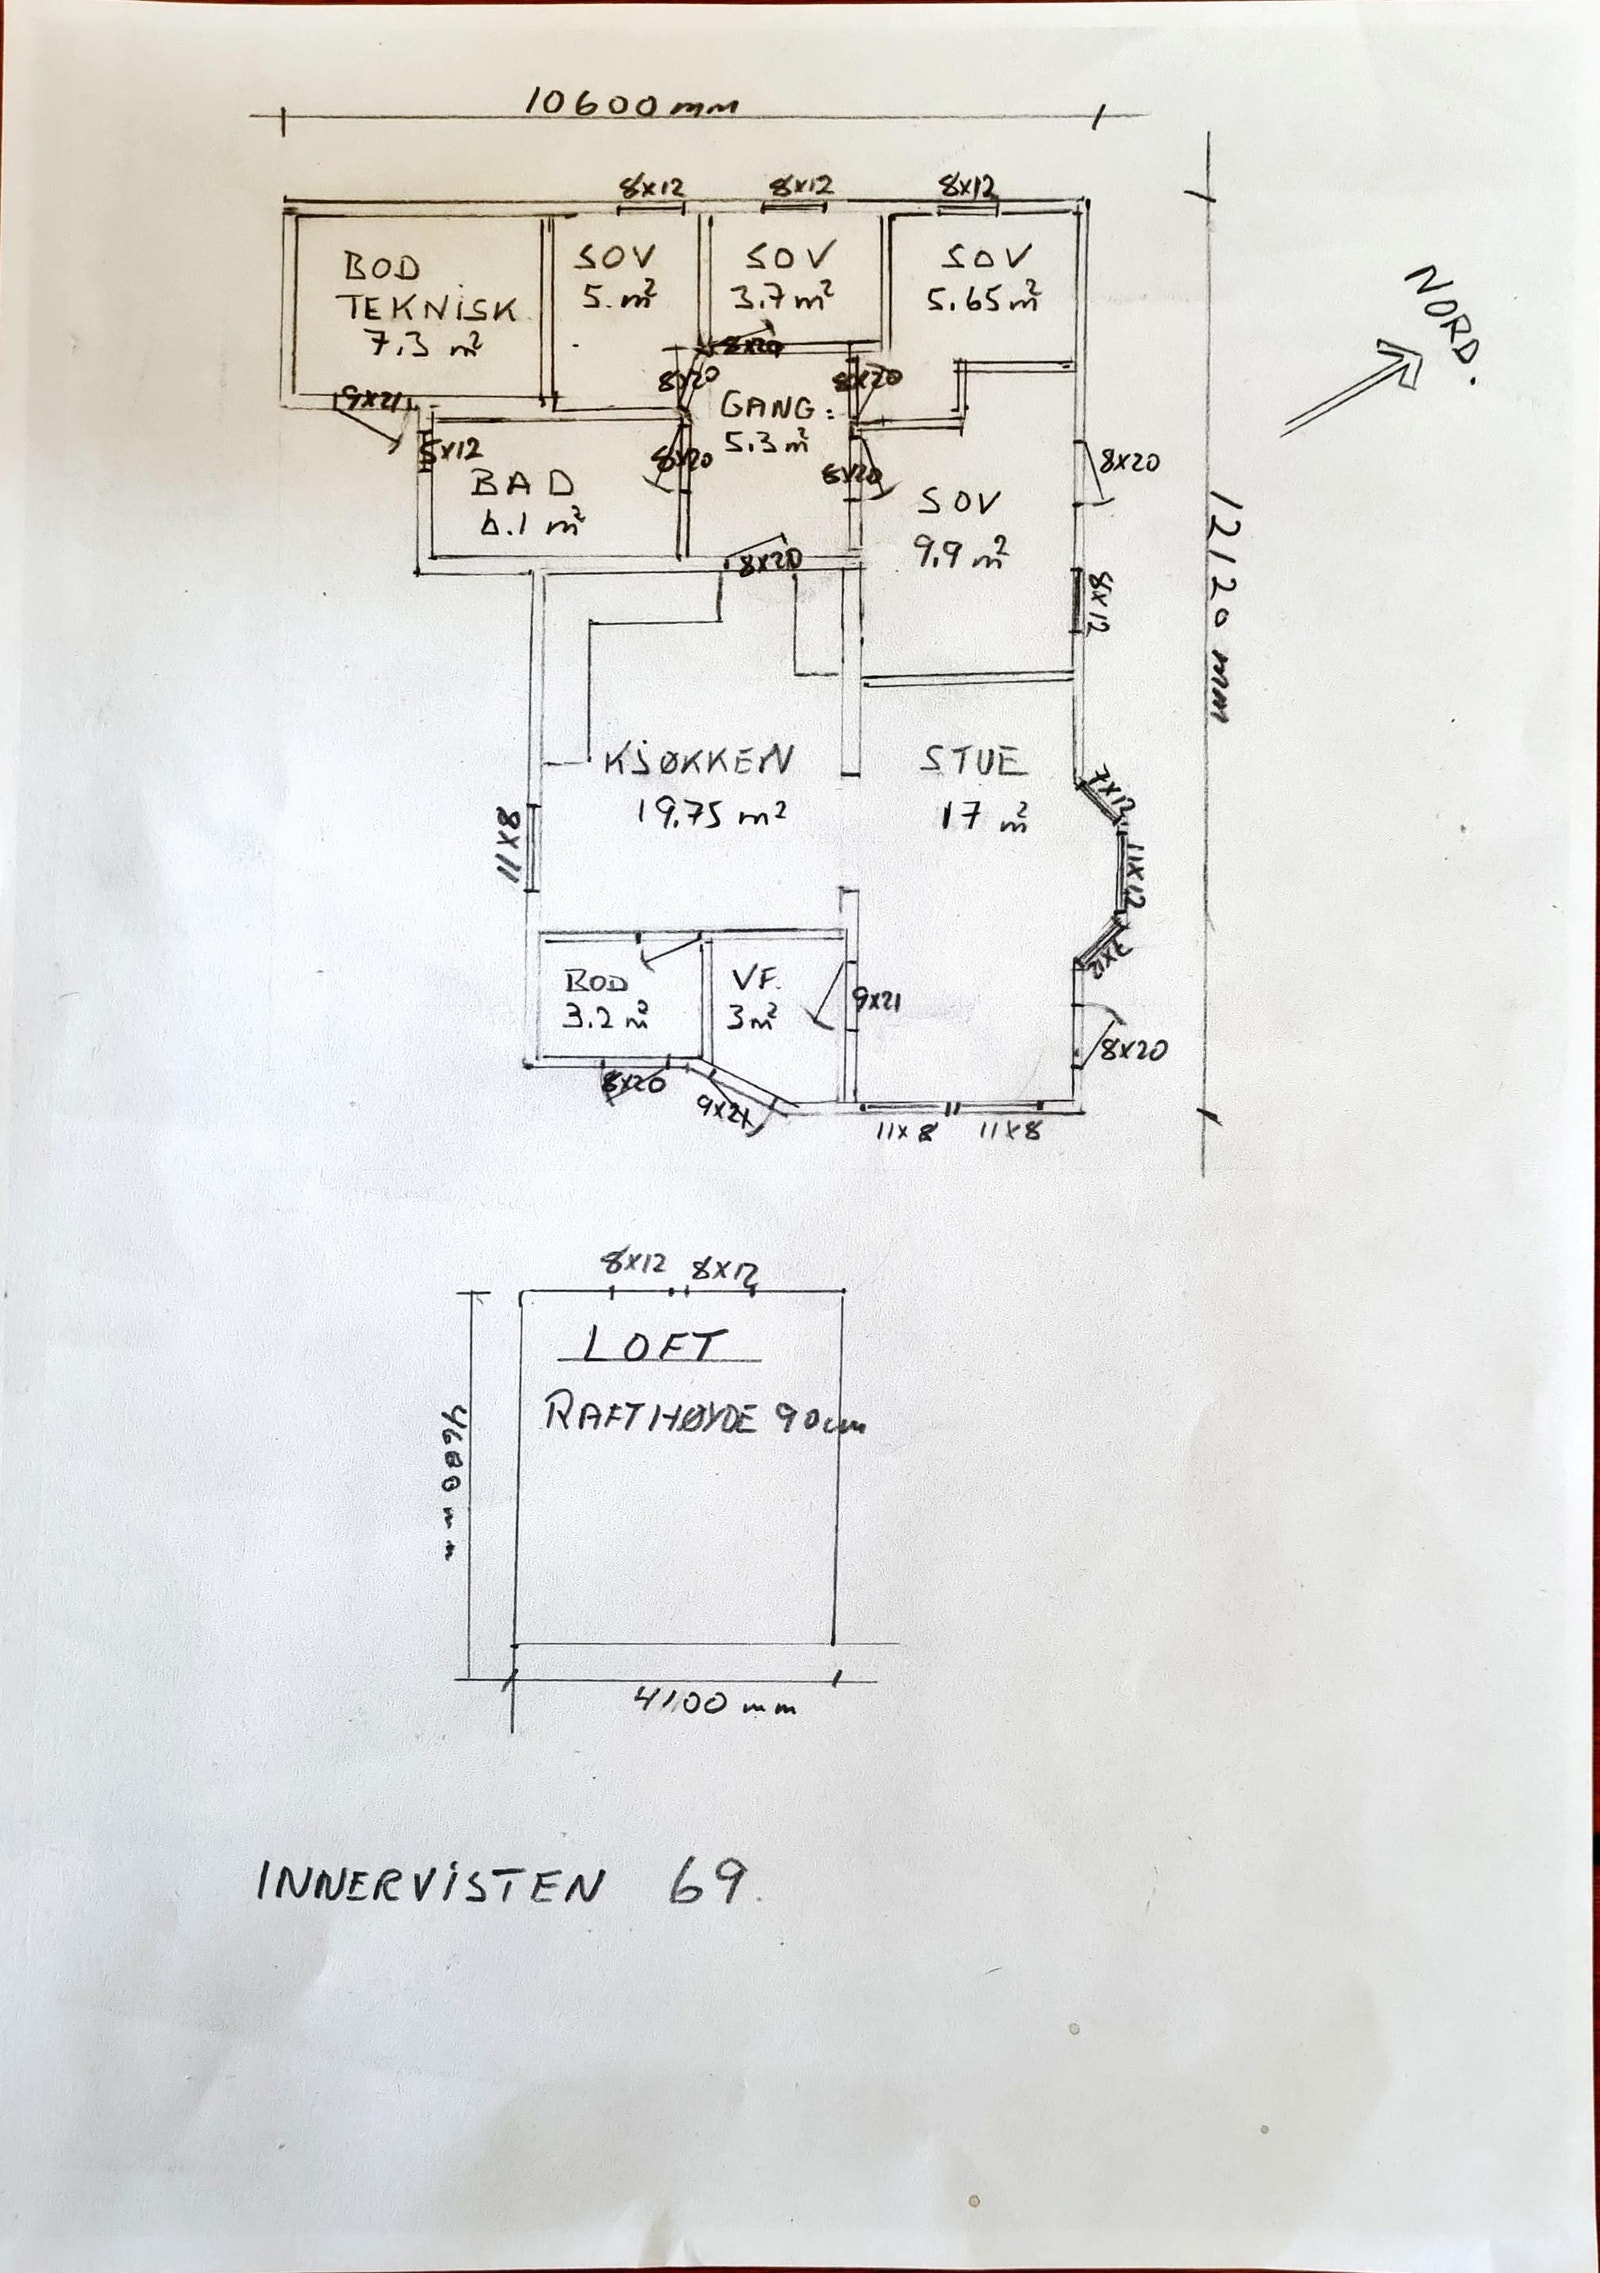 10600 mm
8x12
8x12
8x12
BOD
TEKNISK
7.3 m²
SOV
5. m²
SOV
3.7 m²
SOV
5.65 m²
NORD.
8x20
8x20
8x20
9x21
GANG:
5.3 m²
5x12
8x20
8x20
8x20
BAD
6.1 m²
SOV
9.9 m²
12120 mm
8x20
8x12
KJØKKEN
19.75 m²
STUE
17 m²
7x12
11x8
11x12
7x12
BOD
3.2 m²
VF.
3 m²
9x21
8x20
8x20
9x21
11x8
11x8
8x12
8x12
LOFT
RAFTHØYDE 90cm
4600 mm
4100 mm
INNERVISTEN 69.